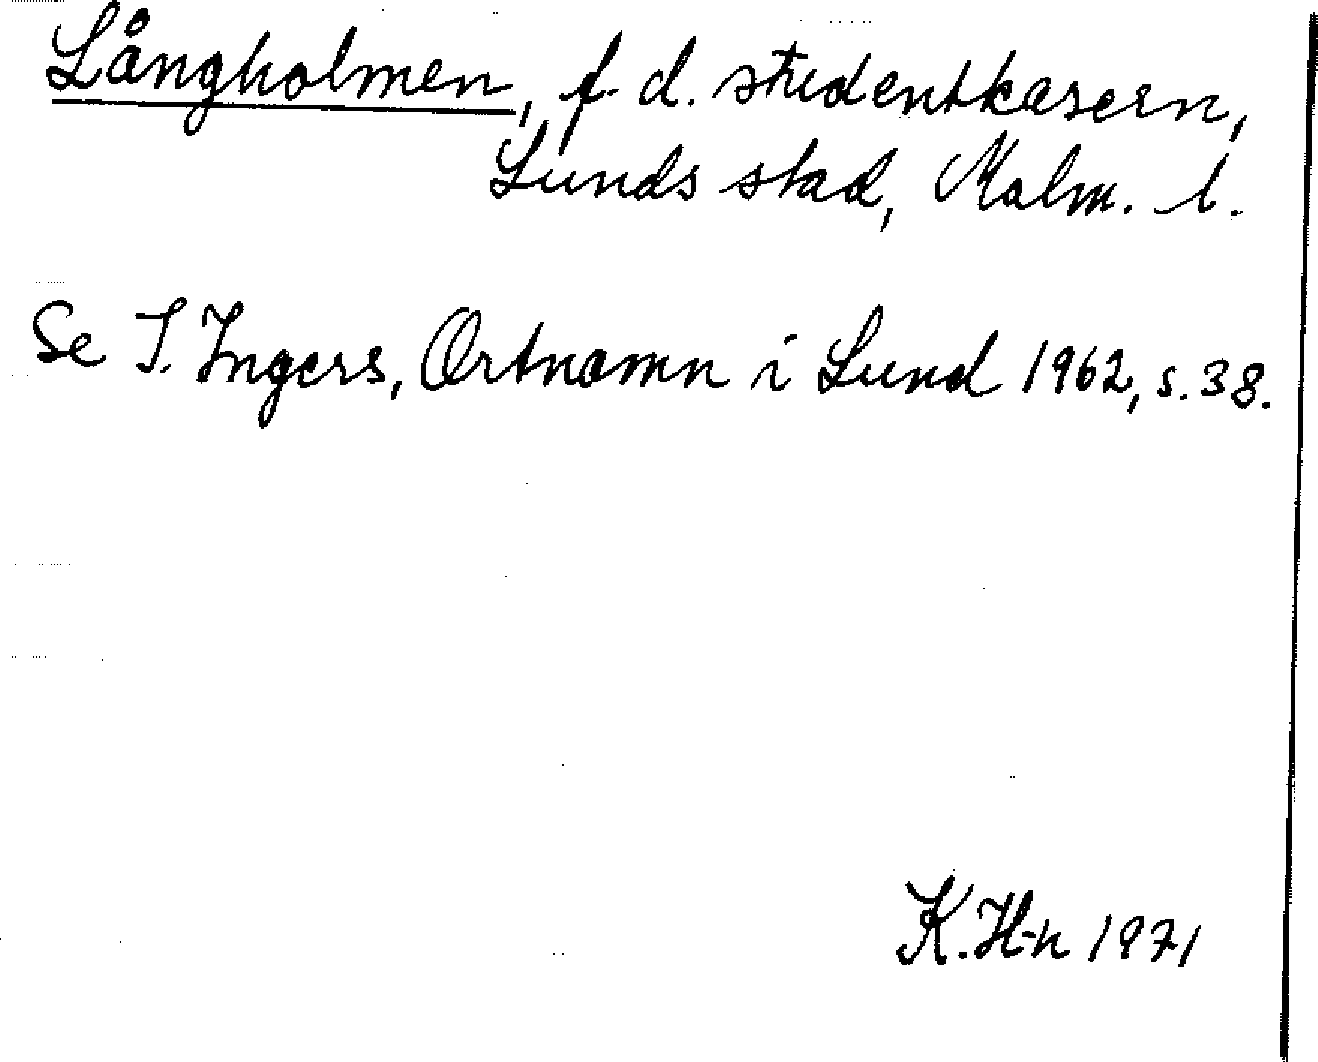 Långholmen, f. d. studentkasern,
Lunds stad, Malm. l.
Se I. Ingers, Ortnamn i Lund 1962, s. 38.
K. H-n 1971